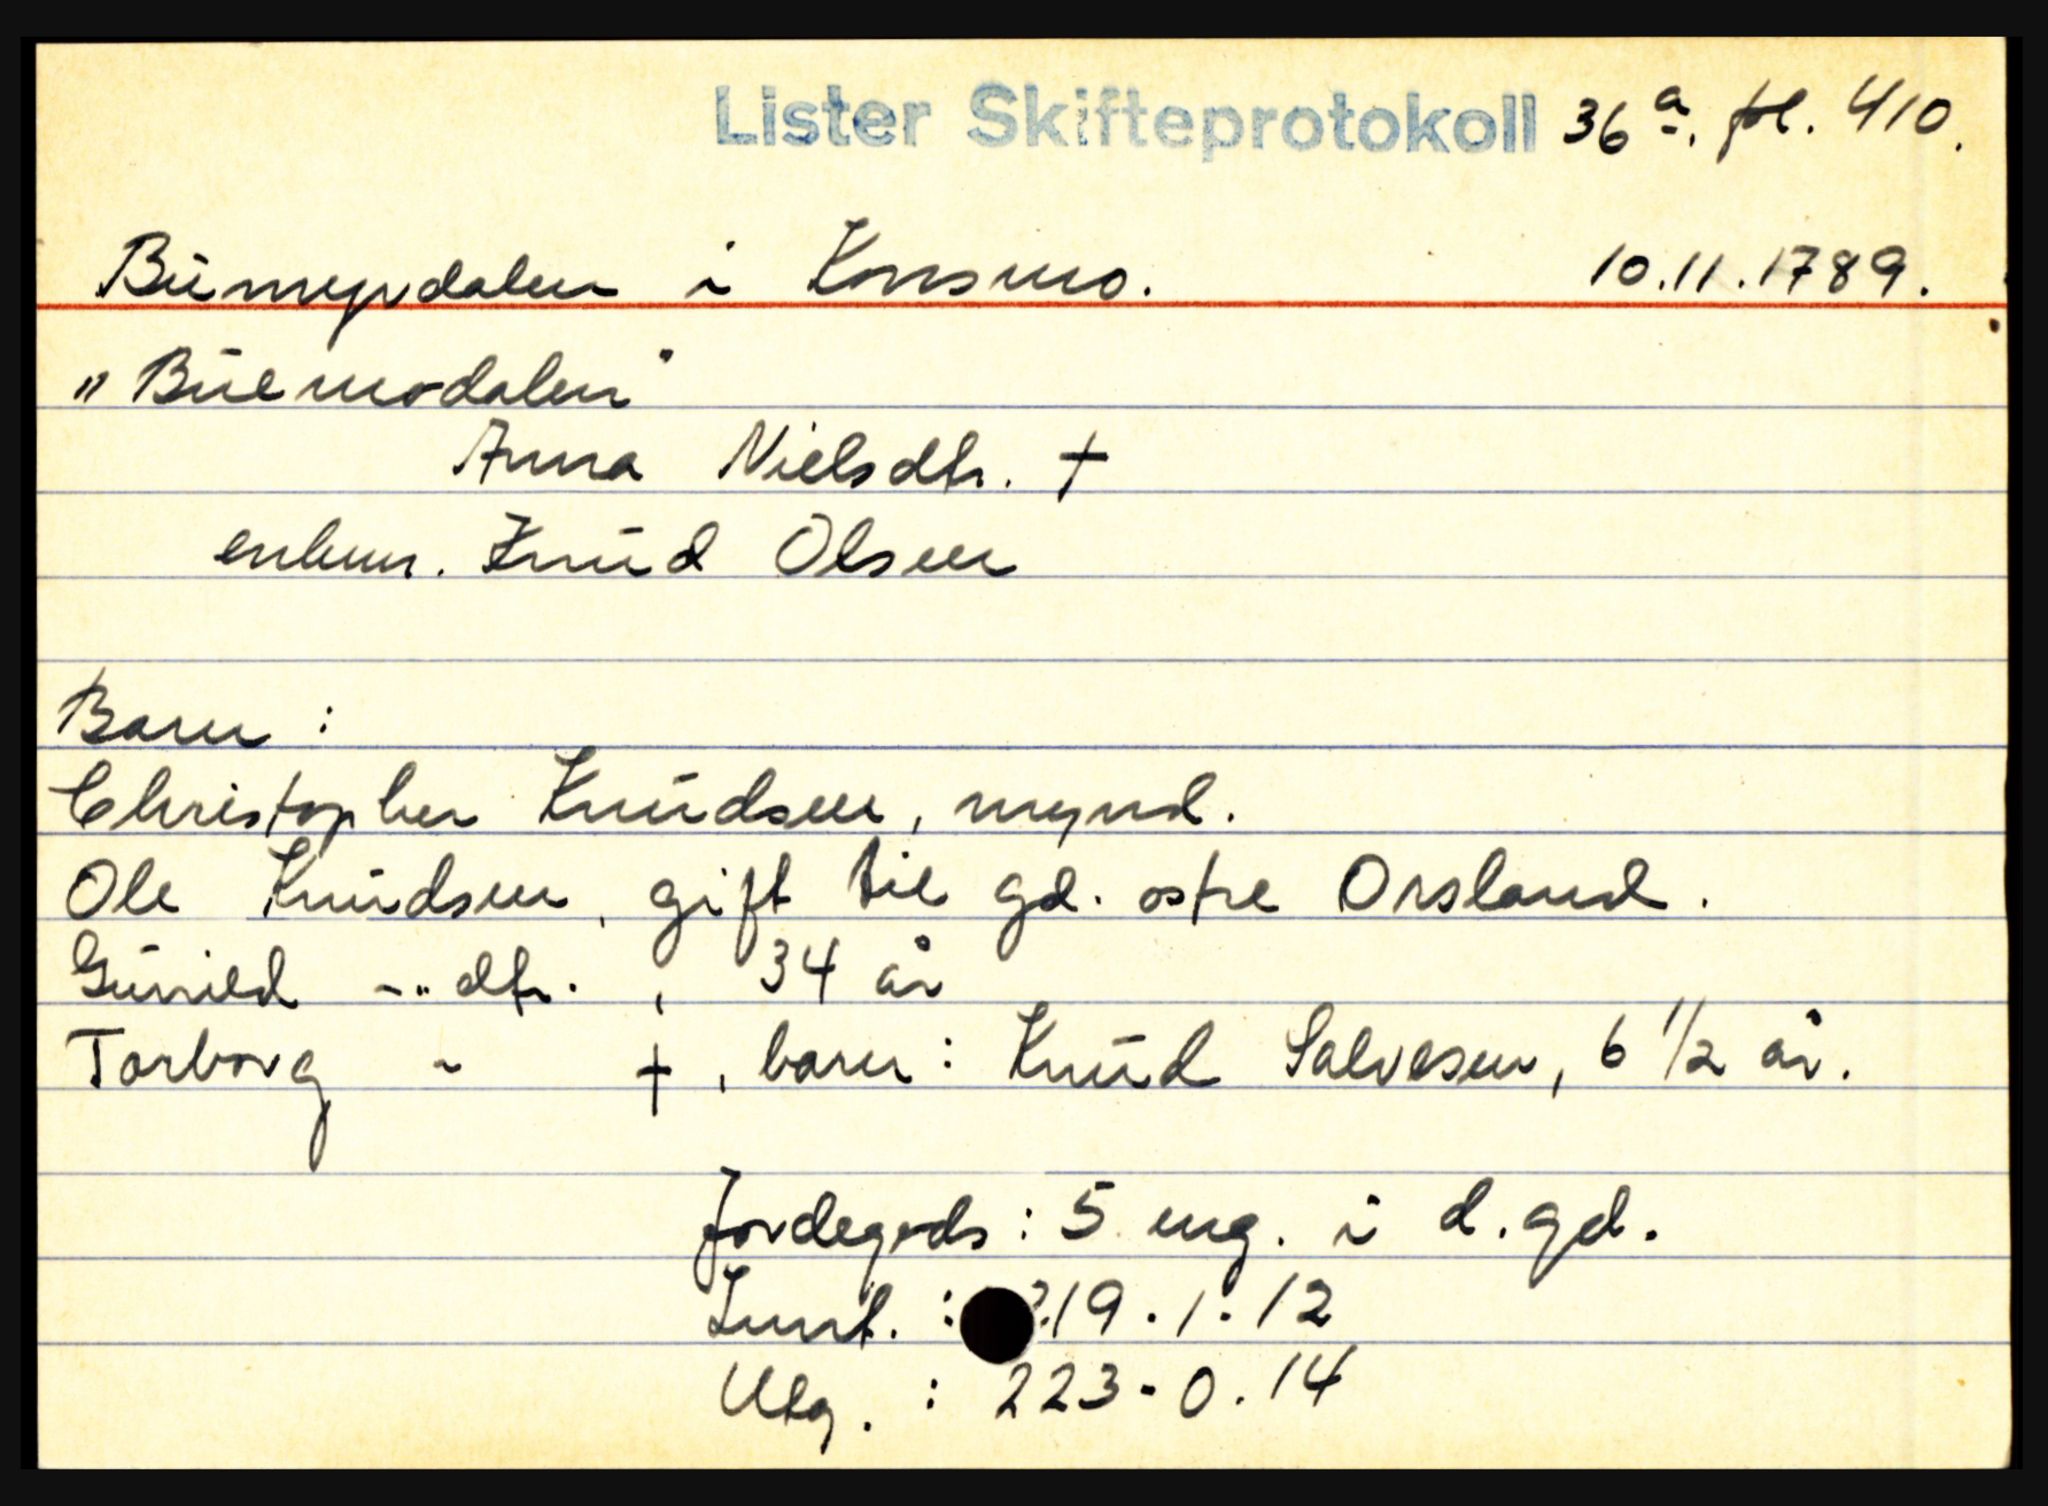 Lister Skifteprotokoll 36ª. fol. 410.
Bumyrdalen i Konsmo. 10.11.1789.
„Buemodalen"
Anna Nielsdtr. †
enkem. Knud Olsen
Barn :
Christopher Knudsen, mynd.
Ole Knudsen, gift til gd. østre Orsland.
Gunild -"- dtr. , 34 år
Torborg - † , barn: Knud Salvesen, 6 1/2 år.
Jordegods : 5 eng. i d. gd.
Innt. : 19. 1. 12
Utg. : 223-0.14